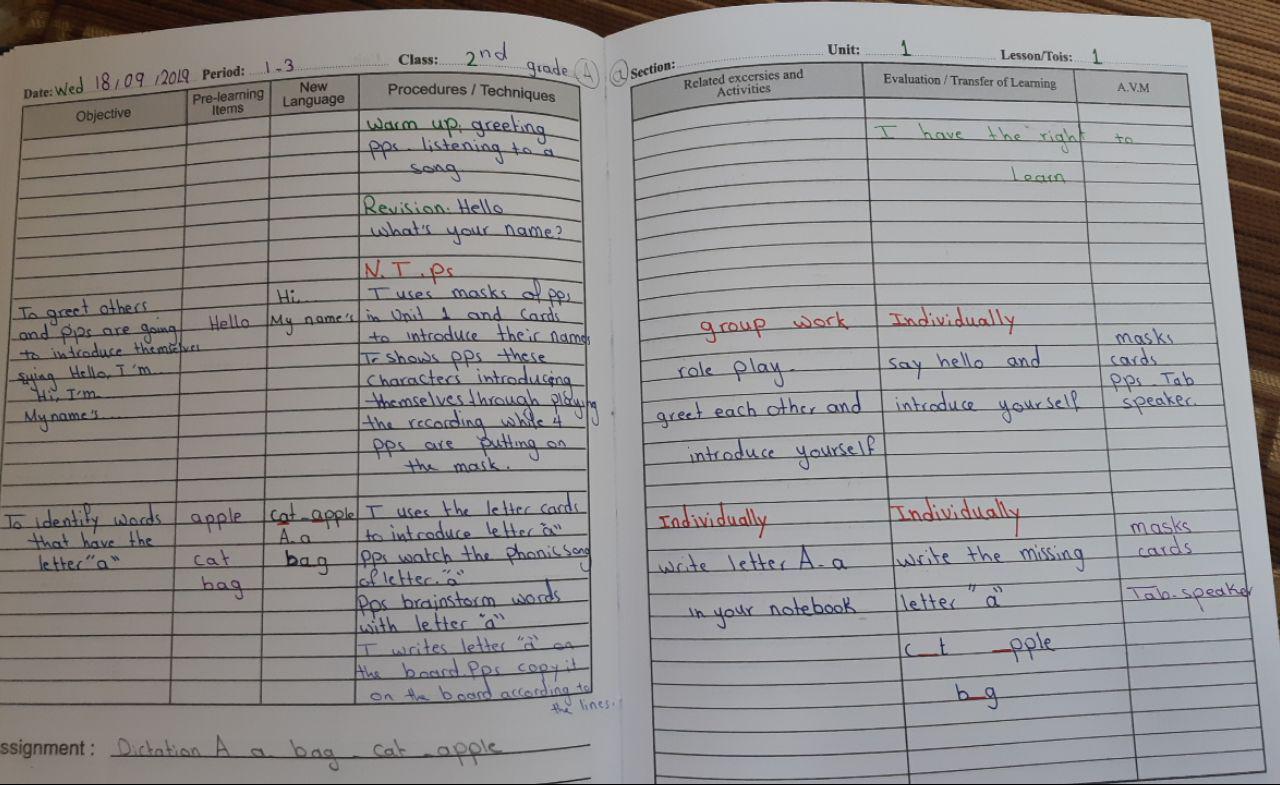 Date: Wed 18/09/2019 Period: 1-3 Class: 2nd grade A
Objective
Pre-learning Items
New Language
Procedures / Techniques
Warm up: greeting
pps. listening to a
song
Revision. Hello
what's your name?
N.T.ps
To greet others
and pps are going
to introduce themselves
sying Hello, I'm
Hi, I'm
My name's
Hello
Hi
My name's
T uses masks of pps
in Unit 1 and cards
to introduce their names
T. shows pps these
characters introducing
themselves through playing
the recording while 4
pps are putting on
the mask.
To identify words
that have the
letter "a"
apple
cat
bag
cat - apple
A. a
bag
T uses the letter cards
to introduce letter "a"
pps watch the phonic song
of letter "a"
Pps brainstorm words
with letter "a"
T writes letter "a" on
the board. Pps copy it
on the board according to
the lines.
ssignment : Dictation A a bag - cat - apple
a Section: Unit: 1 Lesson/Tois: 1
Related excersies and Activities
Evaluation / Transfer of Learning
A.V.M
I have the right to
Learn
group work
role play
greet each other and
introduce yourself
Individually
say hello and
introduce yourself
masks
cards
pps. Tab
speaker.
Individually
write letter A - a
in your notebook
Individually
write the missing
letter "a"
c_t _pple
b_g
masks
cards
Tab-speaker